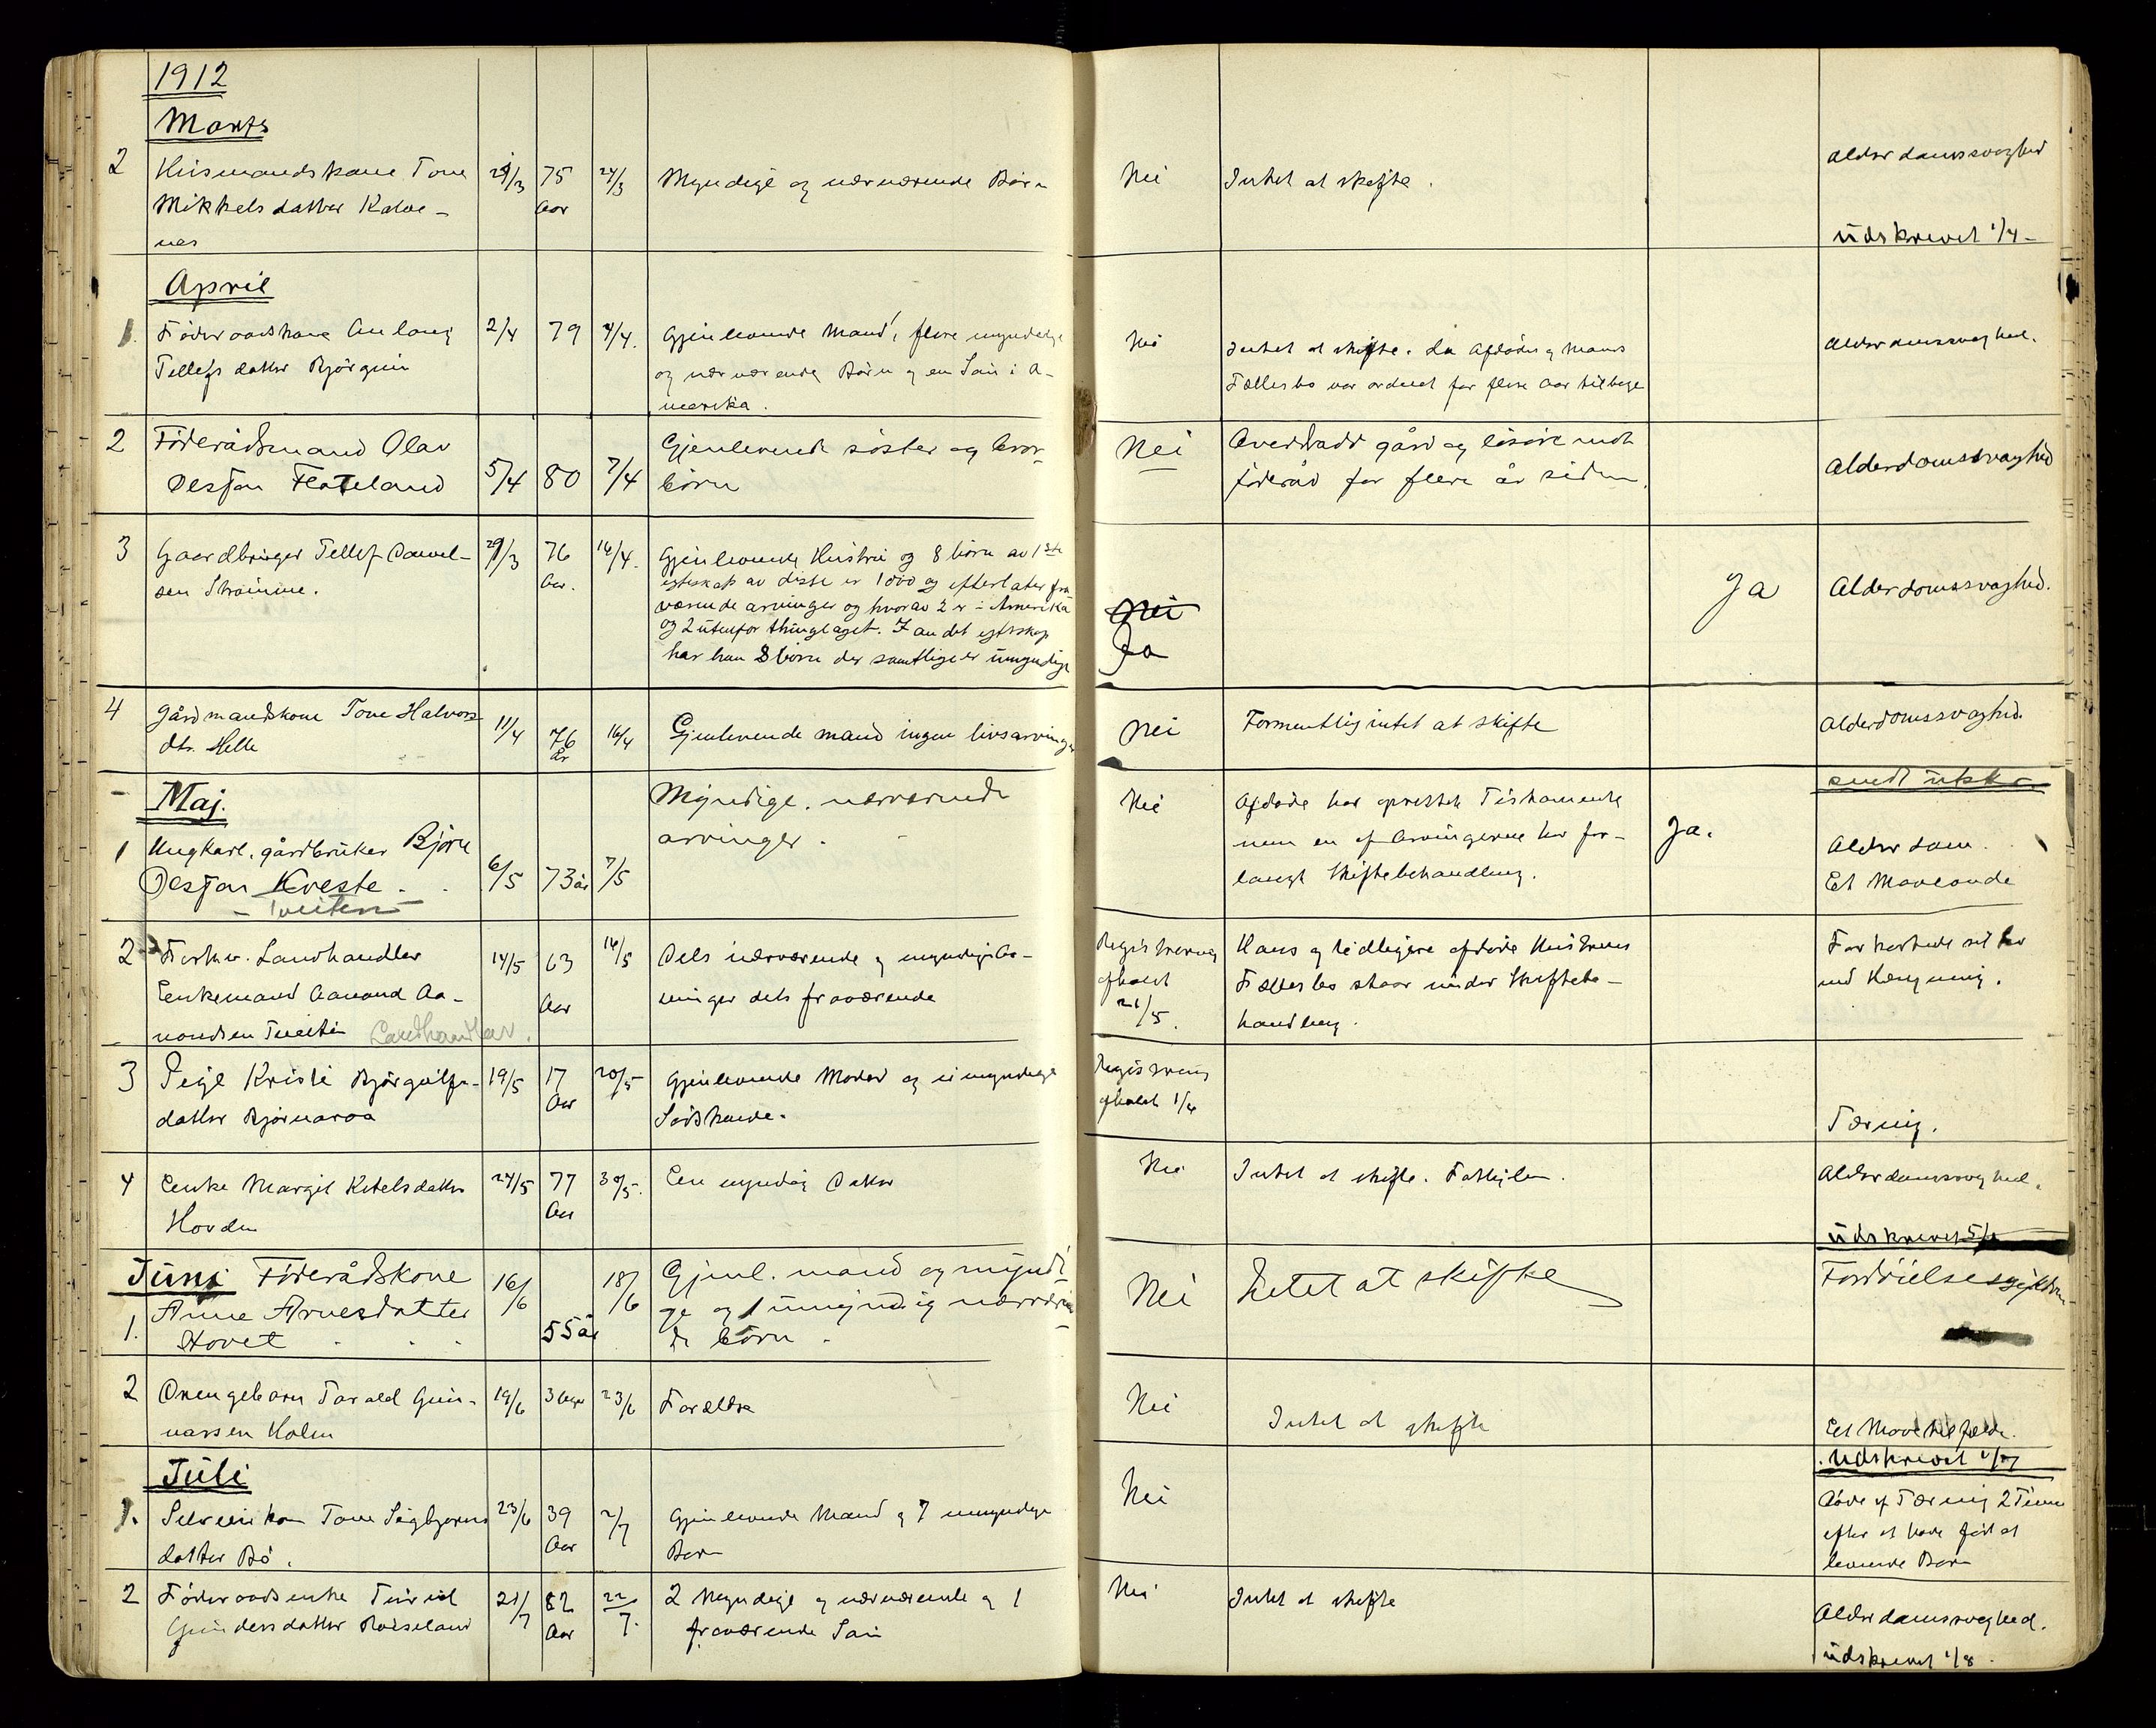 1912
Marts
2
Husmandskone Tone
Mikkelsdatter Kalve-
nes
75
Aar
24/3
Myndige og nærværende Børn
Nei
Intet at skifte.
Alderdomssvaghed
Udskrevet 1/4-
April
1.
Føderaadskone Anlaug
Tellefsdatter Bjørguin
2/4
79
4/4.
Gjenlevende Mand, flere myndige
og nærværende Børn og en Søn i A-
merika.
Nei
Intet at skifte. Da Afdødes og Mands
Fællesbo var ordnet for flere Aar tilbage
Alderdomssvaghed.
2
Føderådsmand Olav
Olesøn Flateland
5/4
80
7/4
Gjenlevende søster og bror-
börn
Nei
Overdradd gård og lösöre mot
föderåd for flere år siden.
Alderdomssvaghed
3
Gaardbruger Tellef Daniel-
sen Straume.
29/3
76
Aar.
16/4.
Gjenlevende Hustru og 8 børn av 1ste
egteskab av disse er 1 død og efterlater fra
værende arvinger og hvorav 2 er i Amerika
og 2 utenfor thinglaget. I andet egteskap
har han 8 börn der samtlige er umyndige
Nei
Ja
Ja
Alderdomssvaghed.
4
Gårdmandskone Tone Halvors
dtr. Helle
11/4
76
år
16/4
Gjenlevende mand ingen livsarvinger
Nei
Formentlig intet at skifte
Alderdomssvaghed.
sendt utskr.
Maj.
1
Ungkarl, gårdbruker Björn
Olesøn Kveste
- Tveiten -
6/5
73 år
7/5
Myndige, nærværende
arvinger.
Nei
Afdøde har oprettet Testamente
men en af Arvingerne har for-
langt Skiftebehandling.
Ja.
Alderdom.
Et Maveonde
2
Forhv. Landhandler
Enkemand Aanund Aa-
nundsen Tveiten Landhandlar.
14/5
63
Aar
16/5
Dels nærværende og myndige Ar-
vinger dels fraværende
Registrering
afholdt
21/5.
Hans og tidligere afdøde Hustrues
Fællesbo staar under Skiftebe-
handling.
Forkortede sit liv
ved Hængning.
3
Pige Kristi Bjørgulfs-
datter Bjørnaraa
19/5
17
Aar
20/5
Gjenlevende Moder og umyndige
Sødskende.
Registrering
afholdt 1/6
Tæring.
4
Enke Margit Ketelsdatter
Hovden
24/5
77
Aar
30/5.
Een myndig Datter
Nei
Intet at skifte. Fattiglem.
Alderdomssvaghed.
Udskrevet 5/6
Juni Föderådskone
1.
Anne Arnesdatter
Hovet
16/6
55 år
18/6
Gjenl. mand og myndi-
ge og 1 umyndig nærværen
de börn.
Nei
Intet at skifte
2
Drengebarn Tarald Gun-
narssen Holen
19/6
23/6
Forældre
Nei
Intet at skifte
Et Mavetilfælde.
Udskrevet 1/7
Juli
1.
Tone Sigbjørns
datter Bø.
23/6
39
Aar
2/7
Gjenlevende Mand og 7 umyndige
Børn
Nei
Døde af Tæring 2 Timer
efter at have født et
levende Barn
2
Føderaadsenke Turid
Gundersdatter Røiseland
21/7
82
Aar
22/7.
2 Myndige og nærværende og 1
fraværende Søn
Nei
Intet at skifte
Alderdomssvaghed.
Udskrevet 1/8.